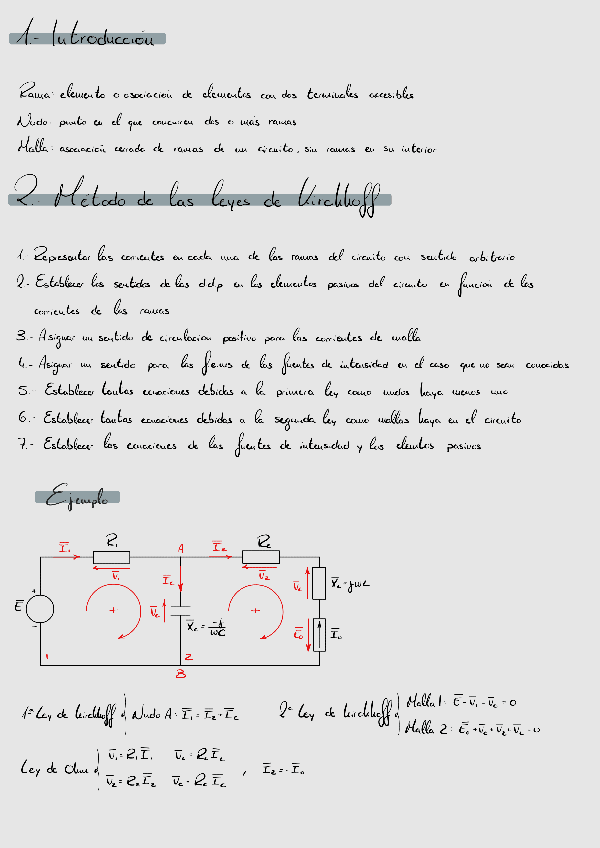 1.- Introducción
Rama: elemento o asociación de elementos con dos terminales accesibles
Nudo: punto en el que concurren dos o más ramas
Malla: asociación cerrada de ramas de un circuito, sin ramas en su interior
2.- Método de las leyes de Kirchhoff
1. Representar las corrientes en cada una de las ramas del circuito con sentido arbitrario
2.- Establecer los sentidos de las ddp en los elementos pasivos del circuito en función de las
corrientes de las ramas
3.- Asignar un sentido de circulación positivo para las corrientes de malla
4.- Asignar un sentido para las f.e.ms de las fuentes de intensidad en el caso que no sean conocidas
5.- Establecer tantas ecuaciones debidas a la primera ley como nudos haya menos uno
6.- Establecer tantas ecuaciones debidas a la segunda ley como mallas haya en el circuito
7.- Establecer las ecuaciones de las fuentes de intensidad y los elemtos pasivos
Ejemplo
I̅₁ R₁ A I̅₂ R₂
V̅₁ I̅c V̅₂
E̅ + - + V̅c + V̅L X̅L = jωL
X̅c = -j/ωC E̅₀ I̅₀
1 2
B
1ª Ley de Kirchhoff { Nudo A: I̅₁ = I̅₂ + I̅c
2ª Ley de Kirchhoff { Malla 1: E̅ - V̅₁ - V̅c = 0
Malla 2: E̅₀ + V̅c + V̅₂ + V̅L = 0
Ley de Ohm { V̅₁ = R₁ I̅₁
V̅₂ = R₂ I̅₂ , I̅₂ = - I̅₀